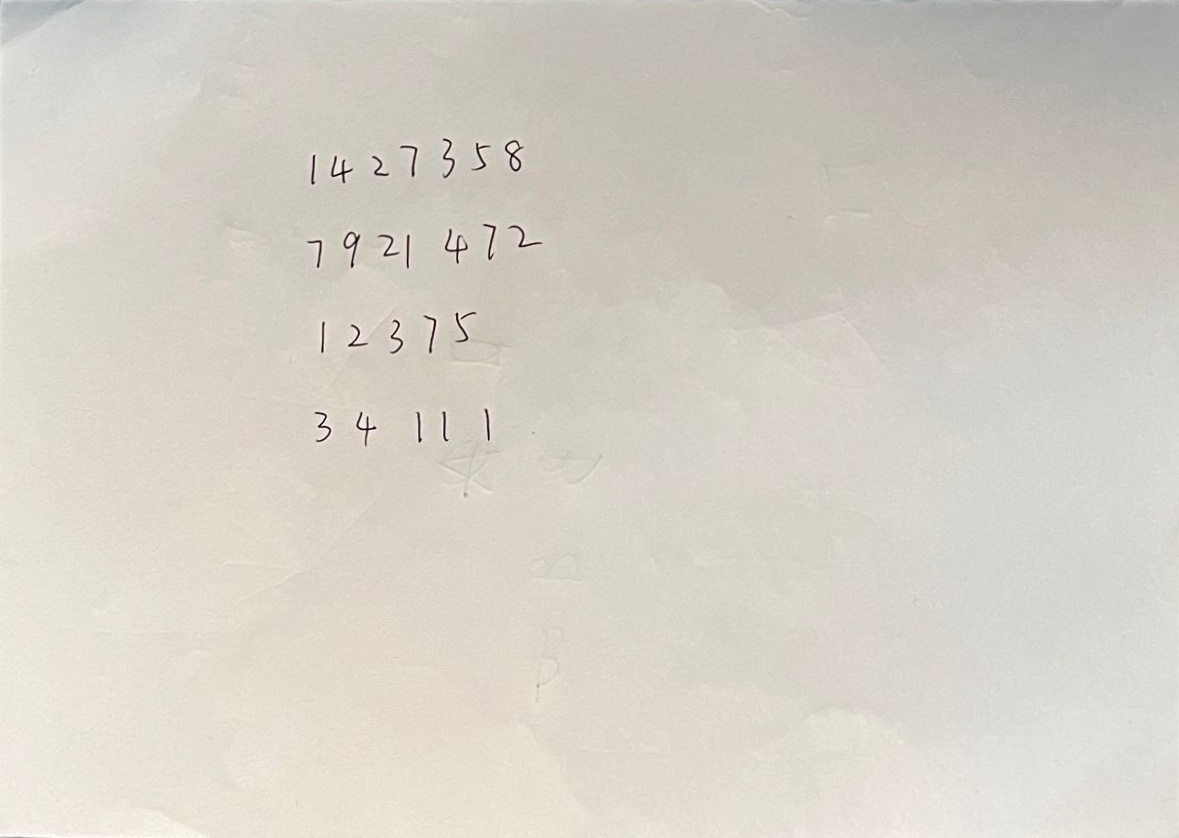 1427358
7921472
12375
34111